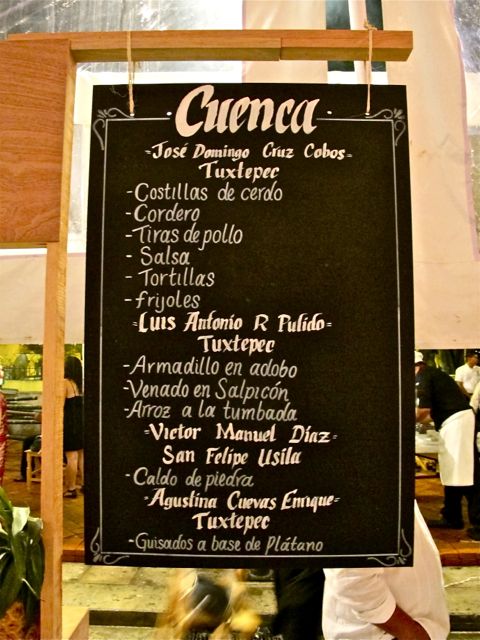 Cuenca
-José Domingo Cruz Cobos-
Tuxtepec
-Costillas de cerdo
-Cordero
-Tiras de pollo
- Salsa
- Tortillas
- frijoles
-Luis Antonio R Pulido-
Tuxtepec
-Armadillo en adobo
-Venado en Salpicón
-Arroz a la tumbada
-Victor Manuel Díaz-
San Felipe Usila
-Caldo de piedra
-Agustina Cuevas Enrique-
Tuxtepec
-Guisados a base de Plátano